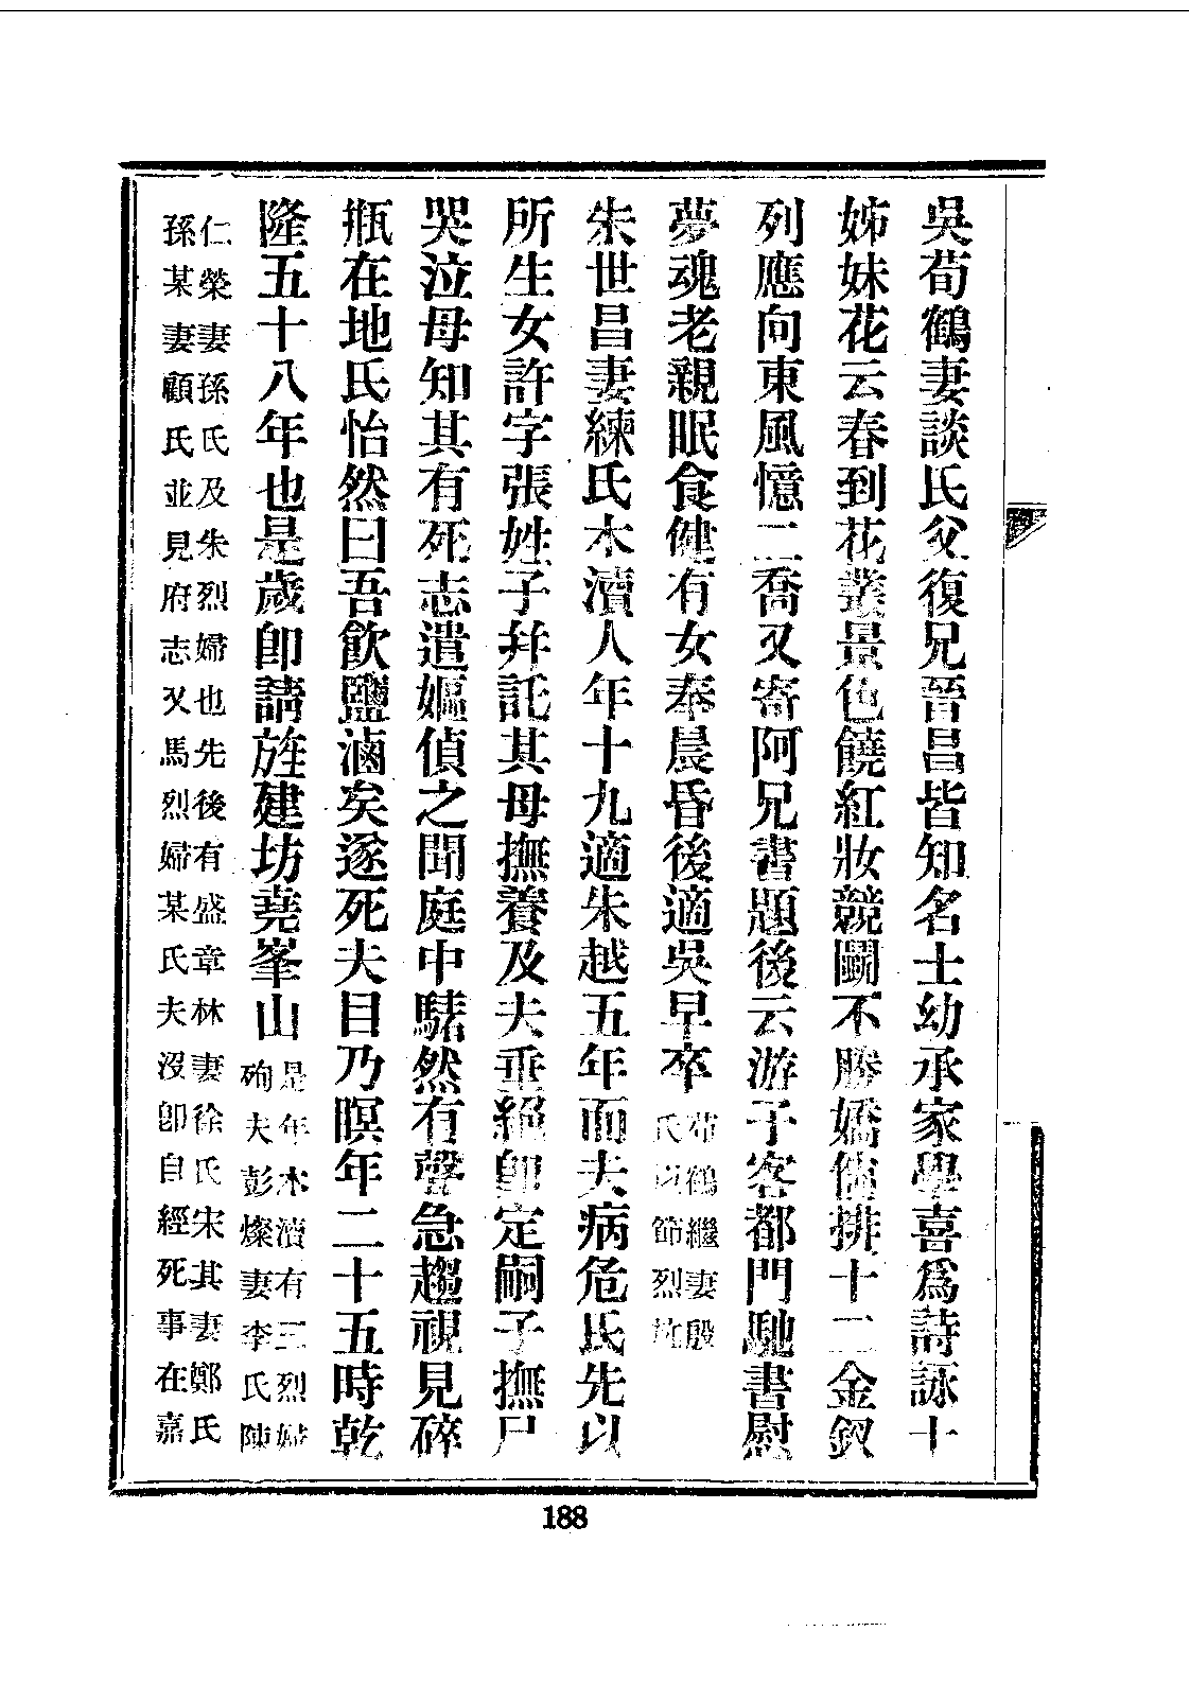 吳荀鶴妻談氏父復兄晉昌皆知名士幼承家學喜爲詩詠十
姊妹花云春到花叢景色饒紅妝競鬭不勝嬌恆排十二金釵
列應向東風憶二喬又寄阿兄書題後云游子客都門馳書慰
夢魂老親眠食健有女奉晨昏後適吳早卒
荀鶴繼妻殷
氏以節烈
朱世昌妻練氏木瀆人年十九適朱越五年而夫病危氏先以
所生女許字張姓子幷託其母撫養及夫垂絕卽定嗣子撫尸
哭泣母知其有死志遣嫗偵之聞庭中驀然有聲急趨視見碎
瓶在地氏怡然曰吾飲鹽滷矣遂死夫目乃瞑年二十五時乾
隆五十八年也是歲卽請旌建坊堯峯山
是年木瀆有三烈婦
殉夫彭燦妻李氏陳
仁榮妻孫氏及朱烈婦也先後有盛章林妻徐氏宋其妻鄭氏
孫某妻顧氏並見府志又馬烈婦某氏夫沒卽自經死事在嘉
188